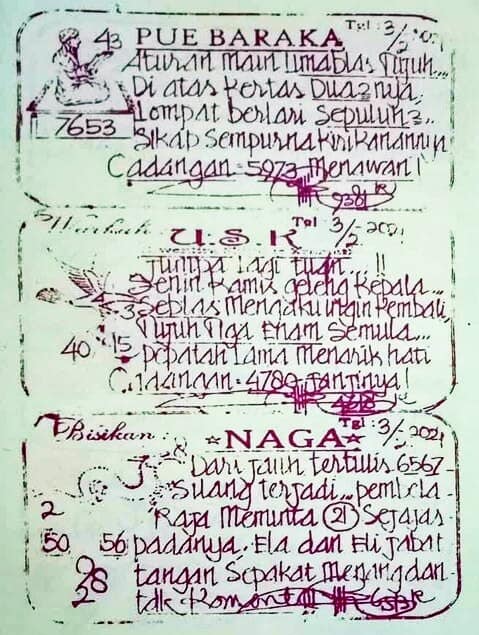 Tgl : 3/2 2021
43 PUE BARAKA
Aturan main limablas Tujuh...
Di atas kertas Duaznya,
7653
Lompat berlari Sepuluhz..
Sikap Sempurna kiri kanannya
Cadangan = 5973 Menawan!
9381
Warkah : U.S.K Tgl 3/2-2021
Jumpa lagi tuan...!!
Senin Kamis geleng kepala...
3 Seblas Mengaku ingin kembali,
Tujuh Tiga Enam Semula...
40 15 pepatah lama menarik hati
Cadangan = 4780 Jantinya!
4218
Bisikan : ☆NAGA☆ Tgl : 3/2-2021
Dari jauh tertulis 6567
Suang terjadi... pembela
2 Raja Meminta 21 Sejajar
50 56 padanya. Ela dan Eli jabat
98 tangan Sepakat Menang dan
2 tdk